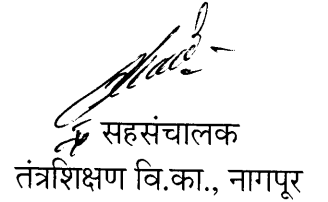 सहसंचालक
तंत्रशिक्षण वि.का., नागपूर